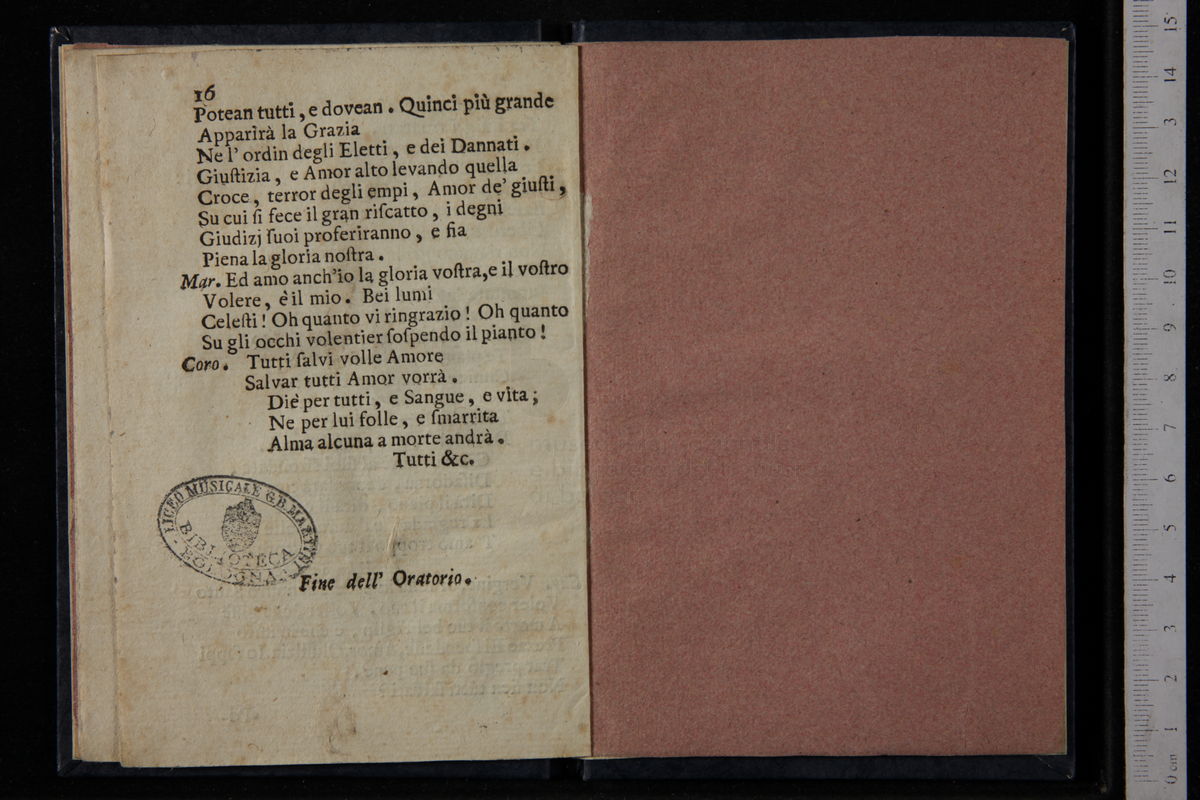 16
Potean tutti, e dovean. Quinci più grande
Apparirà la Grazia
Ne l'ordin degli Eletti, e dei Dannati.
Giuſtizia, e Amor alto levando quella
Croce, terror degli empi, Amor de' giuſti,
Su cui ſi fece il gran riſcatto, i degni
Giudizj ſuoi proferiranno, e fia
Piena la gloria noſtra.
Mar. Ed amo anch'io la gloria voſtra, e il voſtro
Volere, è il mio. Bei lumi
Celeſti! Oh quanto vi ringrazio! Oh quanto
Su gli occhi volentier ſoſpendo il pianto!
Coro. Tutti ſalvi volle Amore
Salvar tutti Amor vorrà.
Diè per tutti, e Sangue, e vita;
Ne per lui folle, e ſmarrita
Alma alcuna a morte andrà.
Tutti &c.
LICEO MUSICALE G.B. MARTINI
BIBLIOTECA
BOLOGNA
Fine dell' Oratorio.
15
14
13
12
11
10
9
8
7
6
5
4
3
2
1
0 cm